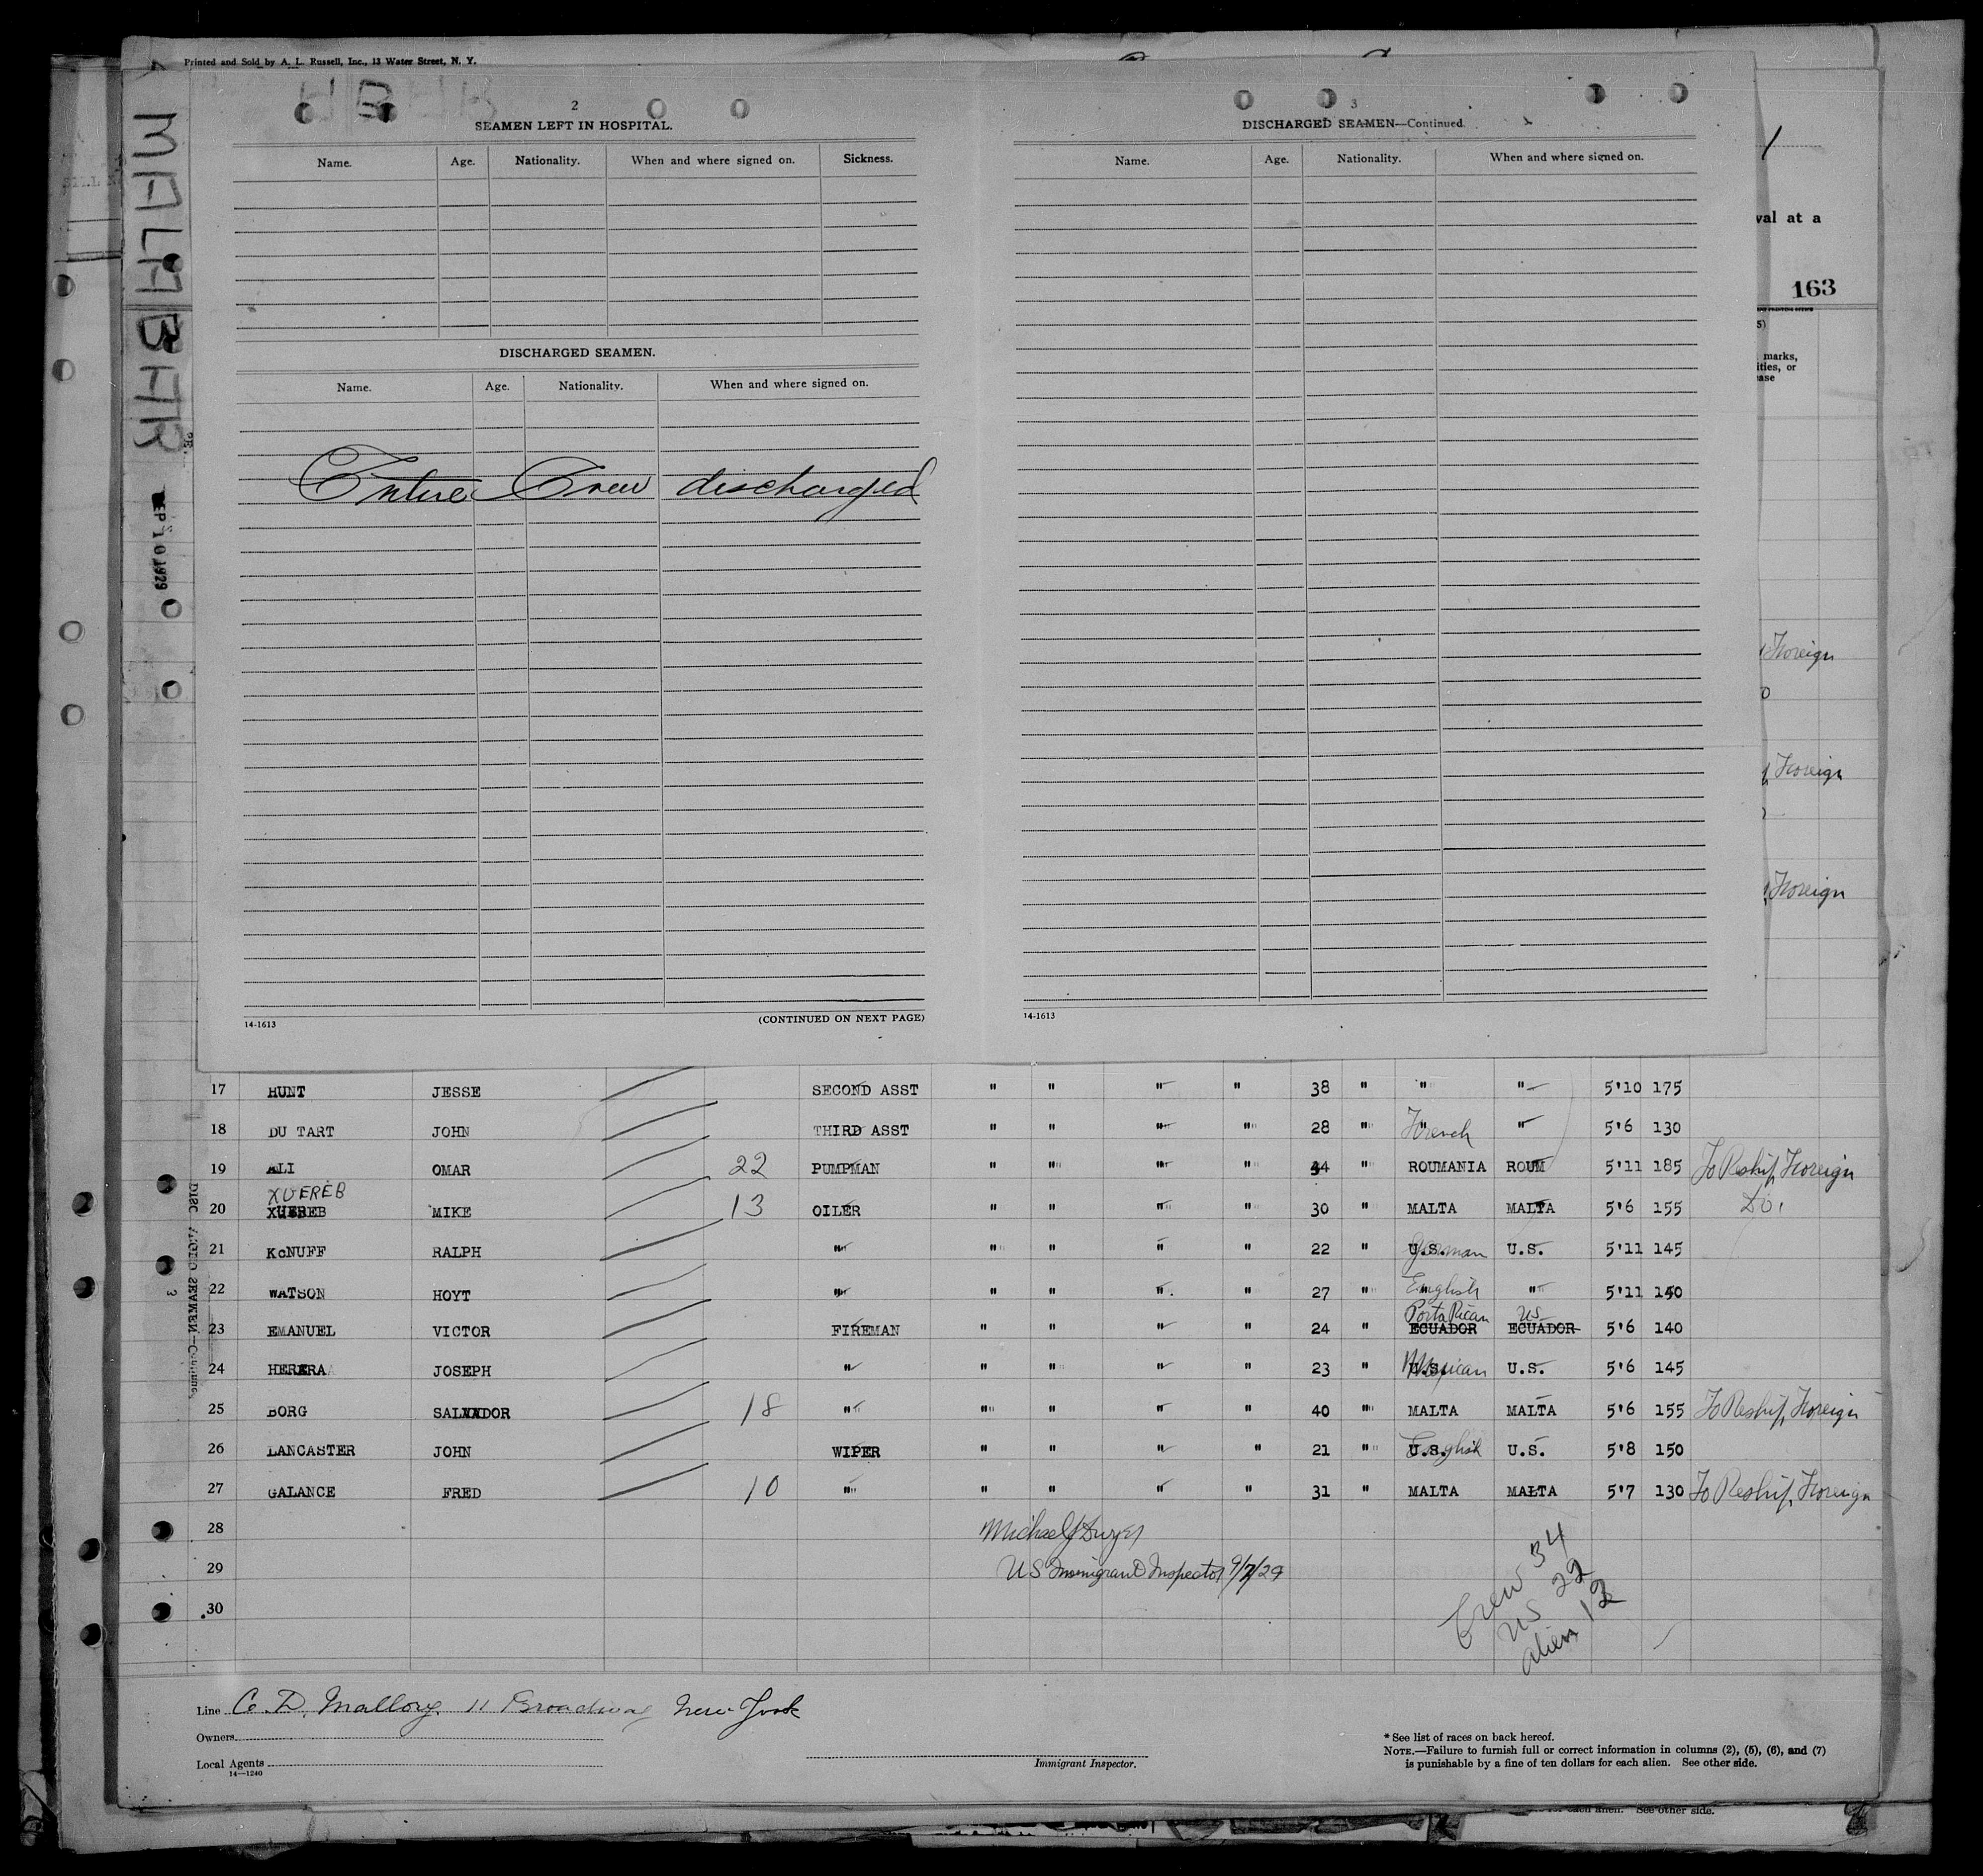 Printed and Sold by A. L. Russell, Inc., 13 Water Street, N. Y.
MALABAR
SEP 10 1929
2
SEAMEN LEFT IN HOSPITAL.
Name. Age. Nationality. When and where signed on. Sickness.
DISCHARGED SEAMEN.
Name. Age. Nationality. When and where signed on.
Entire Crew discharged
14-1613 (CONTINUED ON NEXT PAGE)
3
DISCHARGED SEAMEN—Continued.
Name. Age. Nationality. When and where signed on.
14-1613
val at a
163
marks,
ities, or
ease
Foreign
Foreign
Foreign
17 HUNT JESSE SECOND ASST " " " " 38 " " " 5'10 175
18 DU TART JOHN THIRD ASST " " " " 28 " French " 5'6 130
19 ALI OMAR 22 PUMPMAN " " " " 34 " ROUMANIA ROUM 5'11 185 To Reship Foreign
XUEREB
20 XUEREB MIKE 13 OILER " " " " 30 " MALTA MALTA 5'6 155 Do.
21 McNUFF RALPH " " " " " 22 " U.S. German U.S. 5'11 145
22 WATSON HOYT " " " " " 27 " English " 5'11 150
Porta Rican US
23 EMANUEL VICTOR FIREMAN " " " " 24 " ECUADOR ECUADOR 5'6 140
24 HERERA JOSEPH " " " " " 23 " U.S. Mexican U.S. 5'6 145
25 BORG SALVADOR 18 " " " " " 40 " MALTA MALTA 5'6 155 To Reship Foreign
26 LANCASTER JOHN WIPER " " " " 21 " U.S. English U.S. 5'8 150
27 GALANCE FRED 10 " " " " " 31 " MALTA MALTA 5'7 130 To Reship Foreign
28
29 US Immigrant Inspector 9/7/29
30
Crew 34
US 22
alien 12
Line C. D. Mallory. 11 Broadway New York
Owners
Local Agents
14—1240
Immigrant Inspector.
* See list of races on back hereof.
NOTE.—Failure to furnish full or correct information in columns (2), (5), (6), and (7)
is punishable by a fine of ten dollars for each alien. See other side.
See other side.